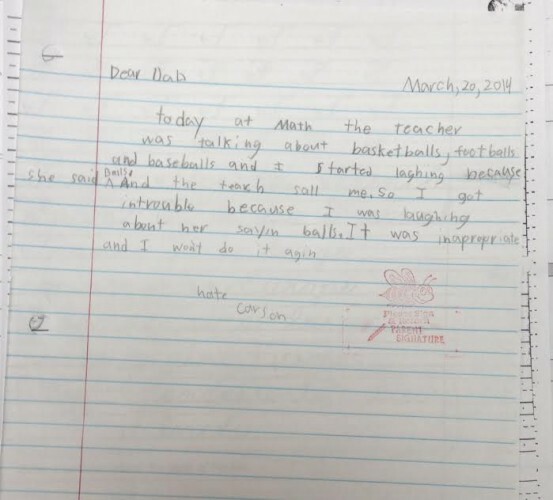 Dear Dab
March, 20, 2014
today at Math the teacher
was talking about basketballs, footballs
and baseballs and I started laghing because
she said balls. And the teach sall me. So I got
introuble because I was laughing
about her sayin balls. It was inapropriate
and I wont do it agin
hate
Carson
PARENT
SIGNATURE